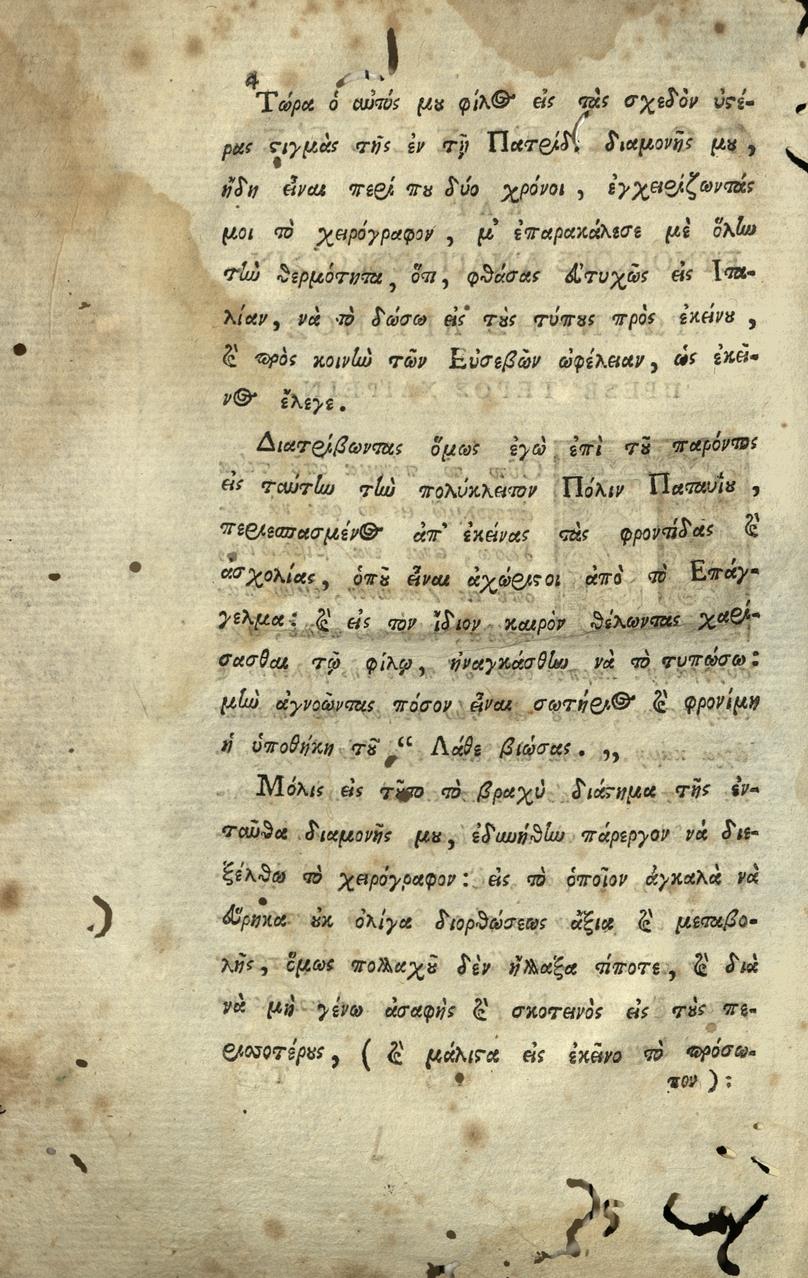 4
Τώρα ὁ αὐτός μου φίλος εἰς τὰς σχεδὸν ὑστέ-
ρας στιγμὰς τῆς ἐν τῇ Πατρίδι διαμονῆς μου,
ἤδη εἶναι περί που δύο χρόνοι, ἐγχειρίζωντάς
μοι τὸ χειρόγραφον, μ' ἐπαρακάλεσε μὲ ὅλην
τὴν θερμότητα, ὅτι, φθάσας εὐτυχῶς εἰς Ιτα-
λίαν, νὰ τὸ δώσω εἰς τοὺς τύπους πρὸς ἐκείνου,
καὶ πρὸς κοινὴν τῶν Εὐσεβῶν ὠφέλειαν, ὡς ἐκεῖ-
νος ἔλεγε.
Διατρίβωντας ὅμως ἐγὼ ἐπὶ τοῦ παρόντος
εἰς ταύτην τὴν πολύκλειτον Πόλιν Παταυΐου,
περιεσπασμένος ἀπ' ἐκείνας τὰς φροντίδας καὶ
ἀσχολίας, ὁποῦ εἶναι ἀχώριστοι ἀπὸ τὸ Επάγ-
γελμα: καὶ εἰς τον ἴδιον καιρὸν θέλωντας χαρί-
σασθαι τῷ φίλῳ, ἠναγκάσθην νὰ τὸ τυπώσω:
μὴν ἀγνοῶντας πόσον εἶναι σωτήριος καὶ φρονίμη
ἡ ὑποθήκη τοῦ “ Λάθε βιώσας. „
Μόλις εἰς τοῦτο τὸ βραχὺ διάστημα τῆς ἐν-
ταῦθα διαμονῆς μου, ἐδυνήθην πάρεργον νὰ διε-
ξέλθω τὸ χειρόγραφον: εἰς τὸ ὁποῖον ἀγκαλὰ νὰ
εὕρηκα οὐκ ὀλίγα διορθώσεως ἄξια καὶ μεταβο-
λῆς, ὅμως πολλαχοῦ δὲν ἤλλαξα τίποτε, καὶ διὰ
νὰ μὴ γένω ἀσαφὴς καὶ σκοτεινὸς εἰς τοὺς πε-
ρισσοτέρους, ( καὶ μάλιστα εἰς ἐκεῖνο τὸ πρόσω-
πον ):